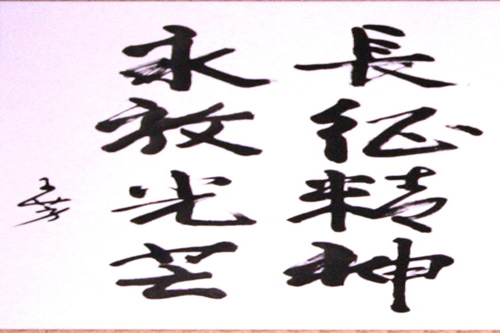 長征精神
永放光芒